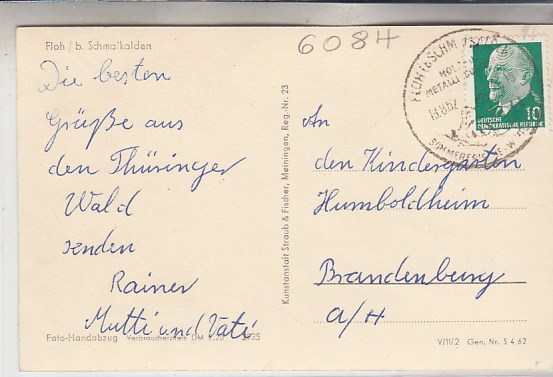 Floh / b. Schmalkalden
6084
Die besten
Grüße aus
den Thüringer
Wald
senden
Rainer
Mutti und Vati
Foto-Handabzug Verbraucherpreis DM 0.20 2935
Kunstanstalt Straub & Fischer, Meiningen, Reg.-Nr. 23
FLOH (SCHM
METALL
13.8.62
SOMMERFRISCHE
10
DEUTSCHE
DEMOKRATISCHE REPUBLIK
An
den Kindergarten
Humboldheim
Brandenburg
a/H
V/11/2 Gen. Nr. S 4 62